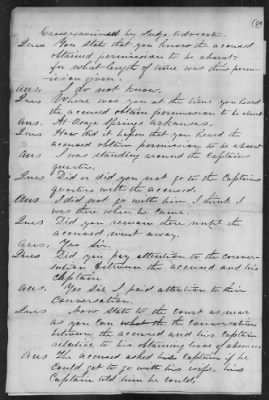 Crossexamined by Judge Advocate
Ques You State that you know the accused
obtained permission to be absent
for what length of time was this perm-
ission given.
Ans. I do not know.
Ques Where was you at the time you heard
the accused obtain permission to be absent
Ans. At Springs Arkansas.
Ques How did it hapen that you heard the
accused obtain permission to be absent
Ans I was standing around the Captains
quarters.
Ques Did or did you not go to the Captains
quarters with the accused.
Ans I did not go with him I think I
was there when he came.
Ques Did you remain there until the
accused went away.
Ans. Yes Sir.
Ques Did you pay attention to the conver-
sation between the accused and his
Captain
Ans. Yes Sir I paid attention to their
Conversation.
Ques Now State to the court as near
as you can what th the conversation
between the accused and his Captain
relative to his obtaining leave of absence
Ans The accused asked his Captain if he
could get to go with his wife, his
Captain told him he could,